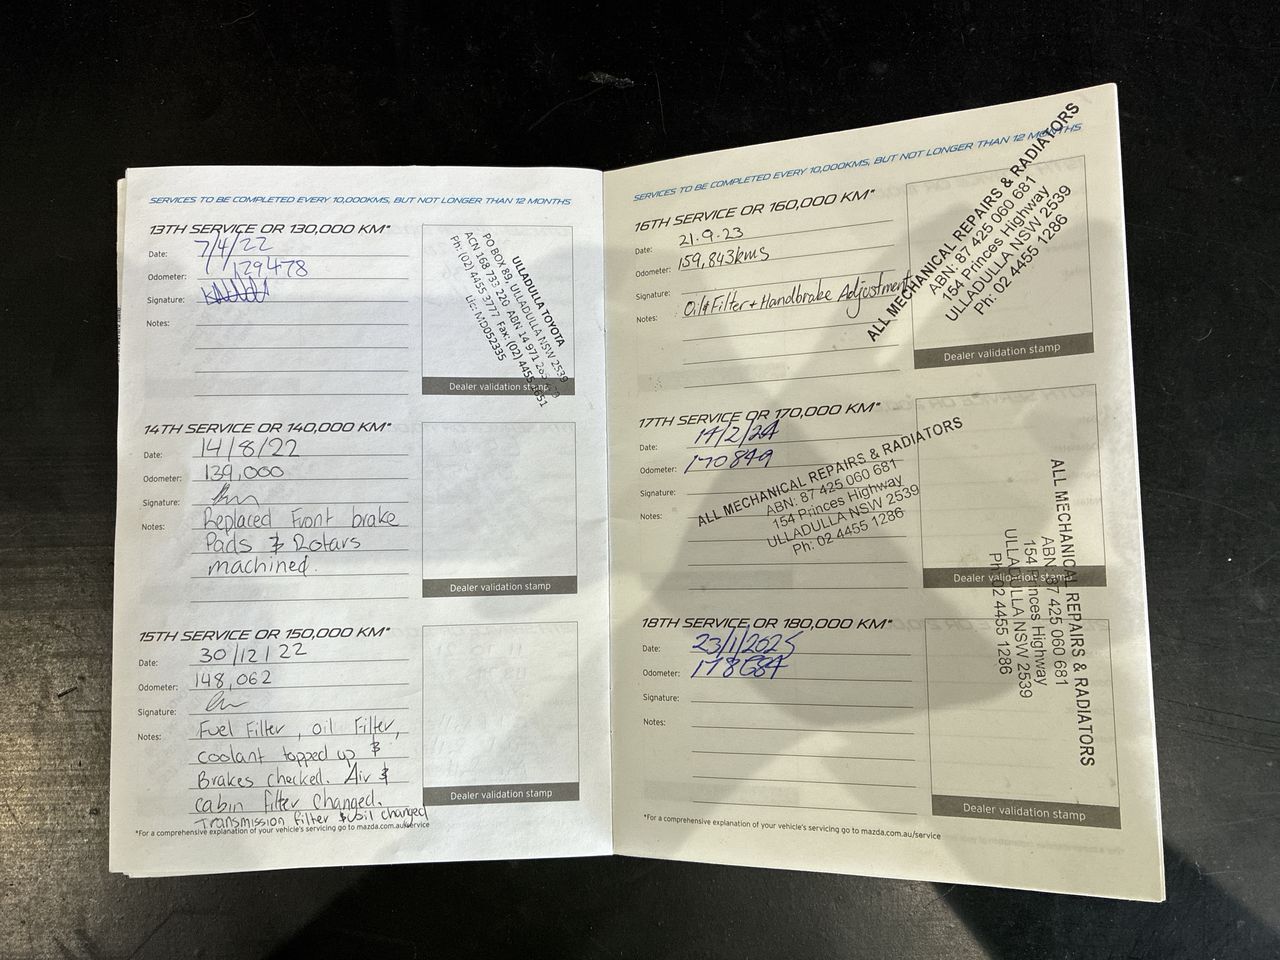 SERVICES TO BE COMPLETED EVERY 10,000KMS, BUT NOT LONGER THAN 12 MONTHS
13TH SERVICE OR 130,000 KM*
Date: 7/4/22
Odometer: 129478
Signature:
Notes:
ULLADULLA TOYOTA
PO BOX 89, ULLADULLA NSW 2539
ACN 168 733 220 ABN 14 971
Ph: (02) 4455 3777 Fax: (02) 4455
Lic: MD052335
Dealer validation stamp
14TH SERVICE OR 140,000 KM*
Date: 14/8/22
Odometer: 139,000
Signature:
Notes: Replaced Front brake
Pads & Rotars
machined.
Dealer validation stamp
15TH SERVICE OR 150,000 KM*
Date: 30/12/22
Odometer: 148,062
Signature:
Notes: Fuel Filter, oil Filter,
coolant topped up &
Brakes checked. Air &
cabin filter changed.
Transmission filter & oil changed
Dealer validation stamp
*For a comprehensive explanation of your vehicle's servicing go to mazda.com.au/service
SERVICES TO BE COMPLETED EVERY 10,000KMS, BUT NOT LONGER THAN 12 MONTHS
16TH SERVICE OR 160,000 KM*
Date: 21.9.23
Odometer: 159,843kms
Signature:
Notes: Oil & Filter + Handbrake Adjustment
ALL MECHANICAL REPAIRS & RADIATORS
ABN: 87 425 060 681
154 Princes Highway
ULLADULLA NSW 2539
Ph: 02 4455 1286
Dealer validation stamp
17TH SERVICE OR 170,000 KM*
Date: 14/2/24
Odometer: 170849
Signature:
Notes:
ALL MECHANICAL REPAIRS & RADIATORS
ABN: 87 425 060 681
154 Princes Highway
ULLADULLA NSW 2539
Ph: 02 4455 1286
Dealer validation stamp
18TH SERVICE OR 180,000 KM*
Date: 23/1/2025
Odometer: 178684
Signature:
Notes:
ALL MECHANICAL REPAIRS & RADIATORS
ABN: 87 425 060 681
154 Princes Highway
ULLADULLA NSW 2539
Ph: 02 4455 1286
Dealer validation stamp
*For a comprehensive explanation of your vehicle's servicing go to mazda.com.au/service